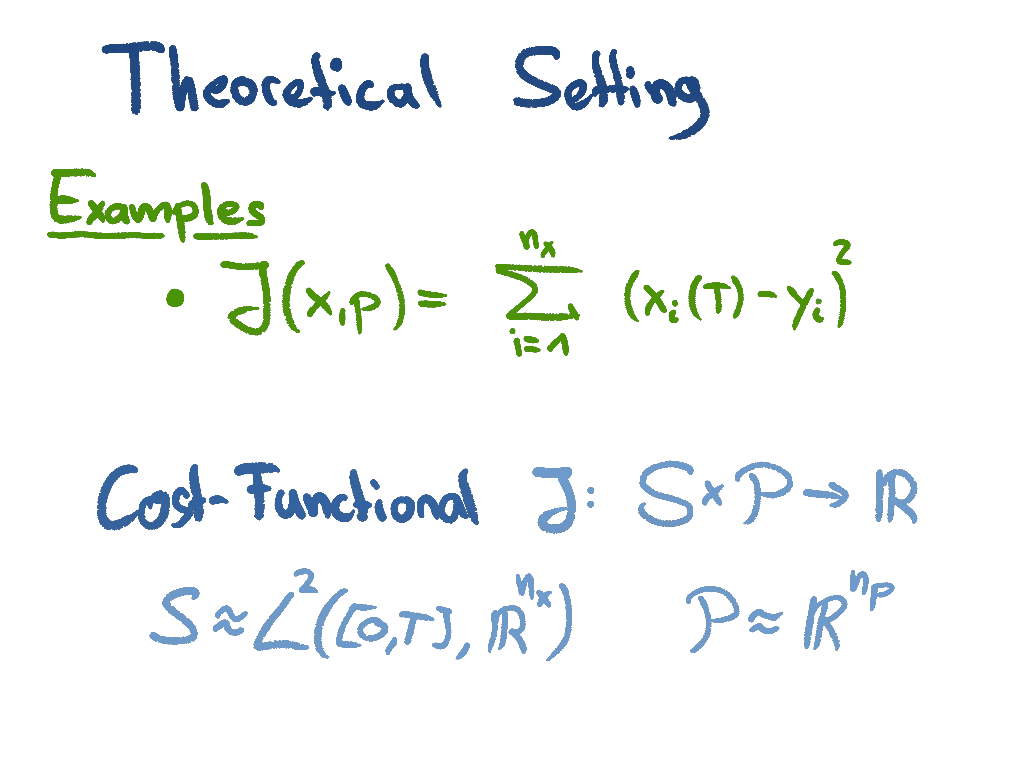 Theoretical Setting
Examples
• J(x,p) = ∑_{i=1}^{n_x} (x_i(T) - y_i)^2
Cost-Functional J: S × P → ℝ
S ≈ L^2([0,T], ℝ^{n_x}) P ≈ ℝ^{n_p}